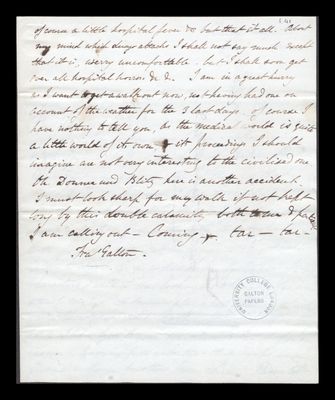 of course a little hospital fever &c but that is all. About
my mind which always attacks I shall not say much except
that it is, worry uncomfortable – but I shall soon get
over all hospital horrors &c &c. I am in a great hurry
as I want to get a walk out now, not having had one on
account of the weather for the 3 last days. Of course I
have nothing to tell you, as the medical world is quite
a little world of its own & its proceedings I should
imagine are not very interesting to the civilized one.
Oh Donner und Blitz, here is another accident.
I must look sharp for my walk if not kept
long by this double calamity, both to me &
I am calling out – Coming – tar – tar –
Fras Galton.
UNIVERSITY COLLEGE LONDON
GALTON
PAPERS